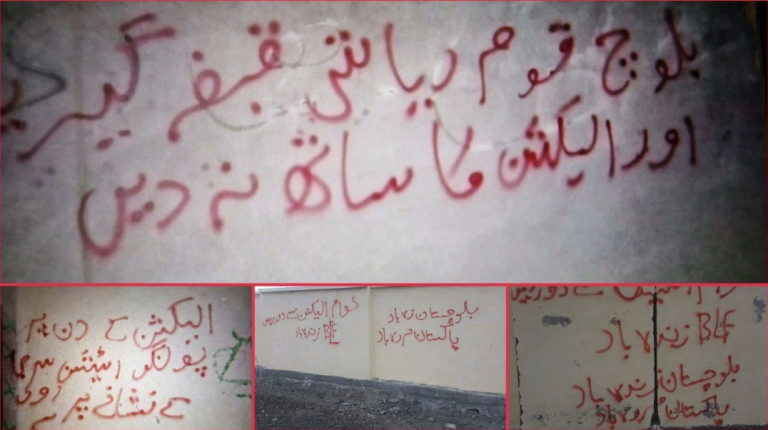 بلوچ قوم ریاستی قبضہ گیر
اور الیکشن کا ساتھ نہ دیں
الیکشن کے دن ہر
پولنگ اسٹیشن سرمچا
روں
کے نشانے پر ہے
بلوچستان زندہ باد
پاکستان مردہ باد
عوام الیکشن سے دور رہیں
BLF زندہ باد
سے دور رہیں
BLF زندہ باد
بلوچستان زندہ باد
پاکستان مردہ باد